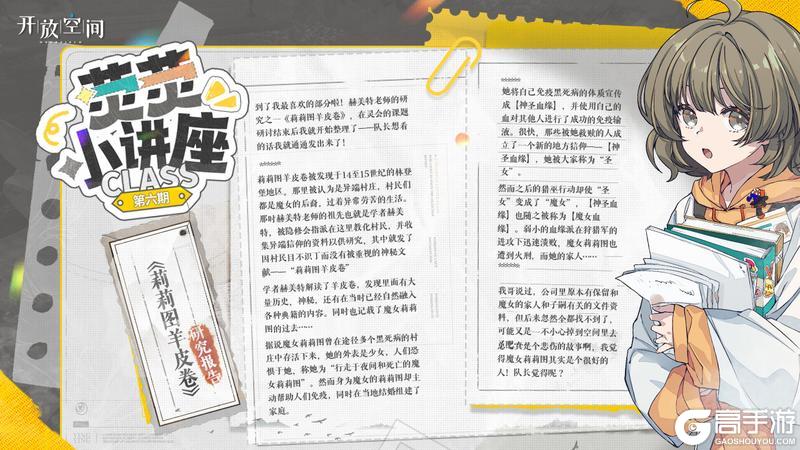 开放空间
芡芡
小讲座
CLASS
第六期
《莉莉图羊皮卷》
研究报告
到了我最喜欢的部分啦！赫美特老师的研
究之一《莉莉图羊皮卷》，在灵会的课题
研讨结束后我就开始整理了——队长想看
的话我就通通发出来了！
莉莉图羊皮卷被发现于14至15世纪的林登
堡地区。那里被认为是异端村庄，村民们
都是魔女的后裔，过着异常劳苦的生活。
那时赫美特老师的祖先也就是学者赫美
特，被隐修会指派在这里教化村民，并收
集异端信仰的资料以供研究，其中就发了
因村民目不识丁而没有被重视的神秘文
献——“莉莉图羊皮卷”
学者赫美特解读了羊皮卷，发现里面有大
量历史、神秘，还有在当时已经自然融入
各种典籍的内容。同时也记载了魔女莉莉
图的过去……
据说魔女莉莉图曾在途径多个黑死病的村
庄中存活下来，她的外表是少女，人们恐
惧于她，称她为“行走于夜间和死亡的魔
女莉莉图”，然而身为魔女的莉莉图却主
动帮助人们免疫，同时在当地结婚组建了
家庭。
她将自己免疫黑死病的体质宣传
成【神圣血缘】，并使用自己的
血对其他人进行了成功的免疫输
液。很快，那些被她救赎的人成
立了一个新的地方信仰——【神
圣血缘】，她被大家称为“圣
女”。
然而之后的猎巫行动却使“圣
女”变成了“魔女”，【神圣血
缘】也随之被称为【魔女血
缘】。弱小的血缘派在狩猎军的
进攻下迅速溃败，魔女莉莉图也
遭到火刑，而她的家人……
我哥说过，公司里原本有保留和
魔女的家人和子嗣有关的文件资
料，但后来忽然全都找不到了，
可能又是一不小心掉到空间里去
了吧，真是个悲伤的故事啊，我觉
得魔女莉莉图其实是个很好的
人！队长觉得呢？
高手游
GAOSHOUYOU.COM